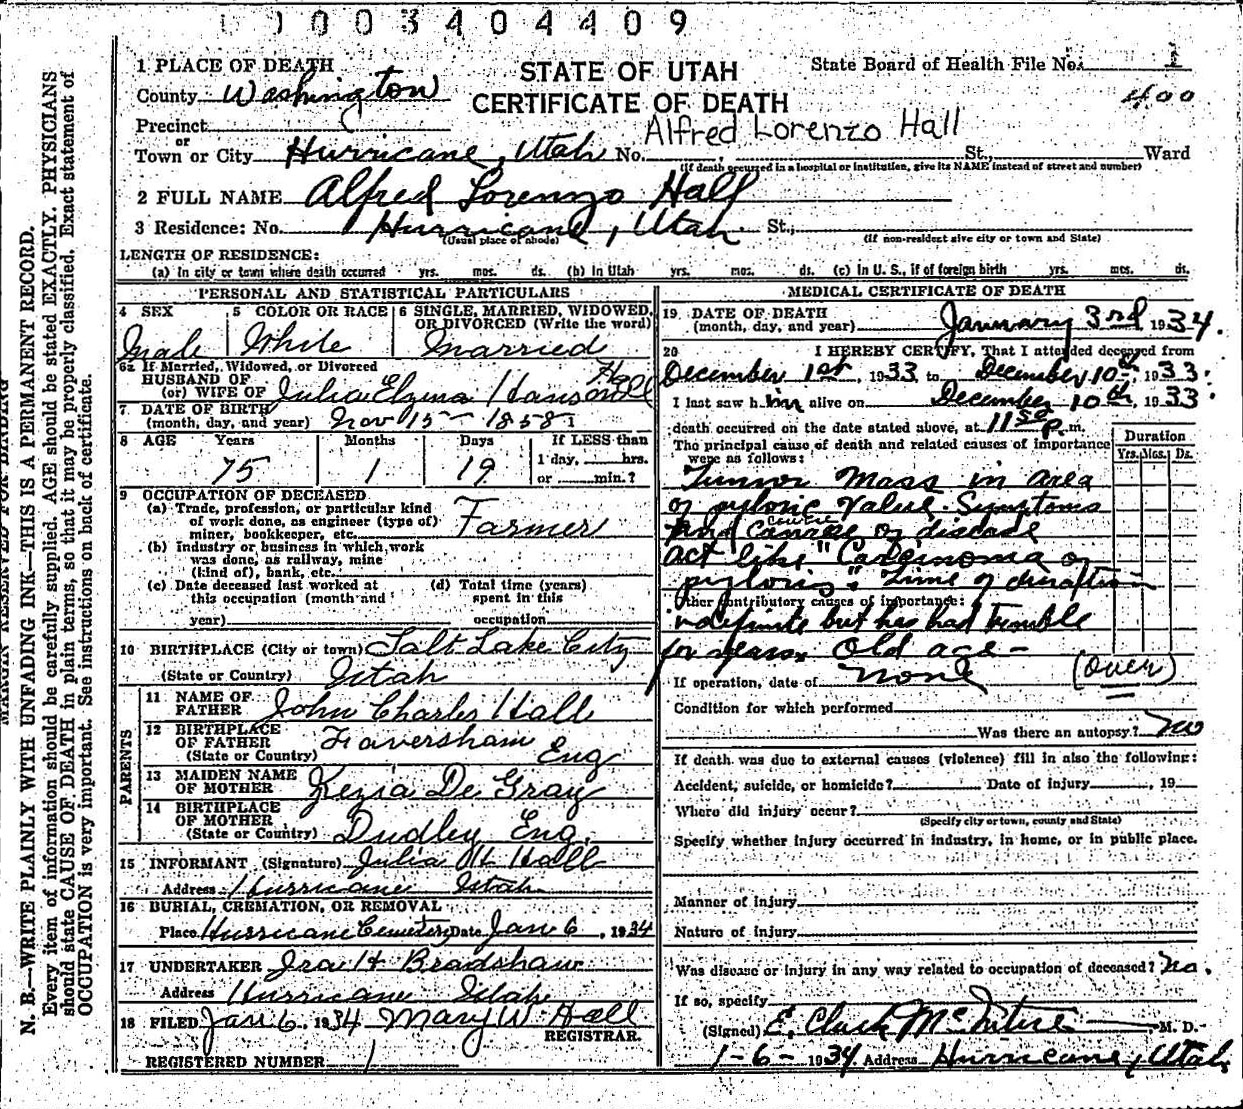 1003404409
1 PLACE OF DEATH
STATE OF UTAH
State Board of Health File No. 1
County Washington
CERTIFICATE OF DEATH
400
Precinct
Alfred Lorenzo Hall
or
Town or City Hurricane, Utah No. St., Ward
(If death occurred in a hospital or institution, give its NAME instead of street and number)
2 FULL NAME Alfred Lorenzo Hall
3 Residence: No. Hurricane, Utah. St.,
(Usual place of abode) (If non-resident give city or town and State)
LENGTH OF RESIDENCE:
(a) In city or town where death occurred yrs. mos. ds. (b) In Utah yrs. mos. ds. (c) In U. S., if of foreign birth yrs. mos. ds.
PERSONAL AND STATISTICAL PARTICULARS
4 SEX 5 COLOR OR RACE 6 SINGLE, MARRIED, WIDOWED,
OR DIVORCED (Write the word)
Male White Married
6a If Married, Widowed, or Divorced
HUSBAND OF
(or) WIFE OF Julia Elzina Hanson Hall
7 DATE OF BIRTH
(month, day, and year) Nov 15 - 1858
8 AGE Years Months Days If LESS than
1 day, hrs.
or min.?
75 1 19
9 OCCUPATION OF DECEASED
(a) Trade, profession, or particular kind
of work done, as engineer (type of)
miner, bookkeeper, etc. Farmer
(b) Industry or business in which work
was done, as railway, mine
(kind of), bank, etc.
(c) Date deceased last worked at (d) Total time (years)
this occupation (month and spent in this
year) occupation
10 BIRTHPLACE (City or town) Salt Lake City
(State or Country) Utah
PARENTS
11 NAME OF
FATHER John Charles Hall
12 BIRTHPLACE
OF FATHER Faversham
(State or Country) Eng
13 MAIDEN NAME
OF MOTHER Kezia De Gray
14 BIRTHPLACE
OF MOTHER
(State or Country) Dudley Eng.
15 INFORMANT (Signature) Julia H. Hall
Address Hurricane Utah
16 BURIAL, CREMATION, OR REMOVAL
Place Hurricane Cemetery Date Jan 6, 1934
17 UNDERTAKER Ira H Bradshaw
Address Hurricane Utah
18 FILED Jan 6, 1934 Mary W. Hall
REGISTRAR.
REGISTERED NUMBER 1
MEDICAL CERTIFICATE OF DEATH
19 DATE OF DEATH
(month, day, and year) January 3rd 1934.
20 I HEREBY CERTIFY, That I attended deceased from
December 1st, 1933 to December 10th, 1933.
I last saw him alive on December 10th, 1933.
death occurred on the date stated above, at 11 50 p. m.
The principal cause of death and related causes of importance
were as follows:
Duration
Yrs. Mos. Ds.
Tumor Mass in area
of pyloric Valve. Symptoms
and course of disease
act like "Carcinoma of
pyloris." Time of duration
Other contributory causes of importance:
indefinite but has had trouble
for years. Old age -
If operation, date of none (over)
Condition for which performed
Was there an autopsy? No
If death was due to external causes (violence) fill in also the following:
Accident, suicide, or homicide? Date of injury , 19
Where did injury occur?
(Specify city or town, county and State)
Specify whether injury occurred in industry, in home, or in public place.
Manner of injury
Nature of injury
Was disease or injury in any way related to occupation of deceased? No.
If so, specify
(Signed) E. Clark McIntire M. D.
1-6-1934 Address Hurricane, Utah
MARGIN RESERVED FOR BINDING
N. B.—WRITE PLAINLY WITH UNFADING INK—THIS IS A PERMANENT RECORD.
Every item of information should be carefully supplied. AGE should be stated EXACTLY. PHYSICIANS
should state CAUSE OF DEATH in plain terms, so that it may be properly classified. Exact statement of
OCCUPATION is very important. See instructions on back of certificate.